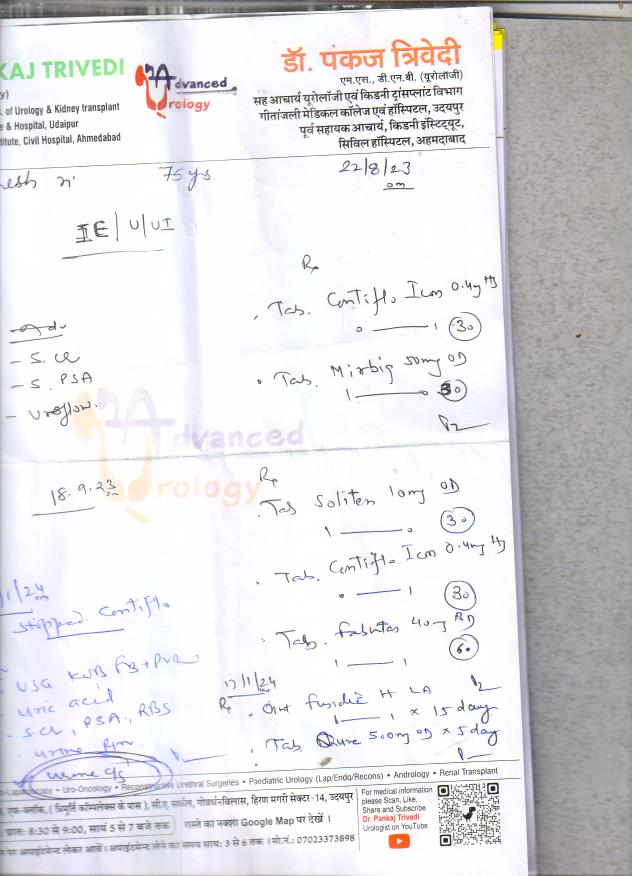 KAJ TRIVEDI
y)
. of Urology & Kidney transplant
e & Hospital, Udaipur
itute, Civil Hospital, Ahmedabad
Advanced
Urology
डॉ. पंकज त्रिवेदी
एम.एस., डी.एन.बी. (यूरोलॉजी)
सह आचार्य यूरोलॉजी एवं किडनी ट्रांसप्लांट विभाग
गीतांजली मेडिकल कॉलेज एवं हॉस्पिटल, उदयपुर
पूर्व सहायक आचार्य, किडनी इंस्टिट्यूट,
सिविल हॉस्पिटल, अहमदाबाद
esh 75 ys 22/8/23
IE/U/UI
Rx
Tab. Contiflo Icon 0.4mg HS
0 — 1 (30)
Tab. Mirbig 50mg OD
1 — 0 30
Adv
- S. CR
- S. PSA
- Uroflow.
Advanced
Urology
18.9.23
Rx
Tab Soliten 10mg OD
1 — 0 (30)
Tab. Contiflo Icon 0.4mg HS
0 — 1 (30)
Tab. 40mg BD
1 — 1 (60)
/1/24
Stopped Contiflo
USG KUB FB + PVR
uric acid
- S. CR, PSA, RBS
urine R/M.
urine C/S
17/1/24
Rx
Oint Fundic H LA
1 — 1 x 15 day
Tab. 500mg OD x 5 day
-Laparoscopy • Uro-Oncology • Reconstructive Urethral Surgeries • Paediatric Urology (Lap/Endo/Recons) • Andrology • Renal Transplant
गोवर्धनविलास, हिरण मगरी सेक्टर-14, उदयपुर
प्रातः 8:30 से 9:00, सायं 5 से 7 बजे तक
रास्ते का नक्शा Google Map पर देखें ।
अपॉइंटमेन्ट लेकर आवें। अपॉइंटमेन्ट लेने का समय सायः 3 से 6 तक । मो.नं.: 07023373898
For medical information
please Scan, Like,
Share and Subscribe
Dr. Pankaj Trivedi
Urologist on YouTube